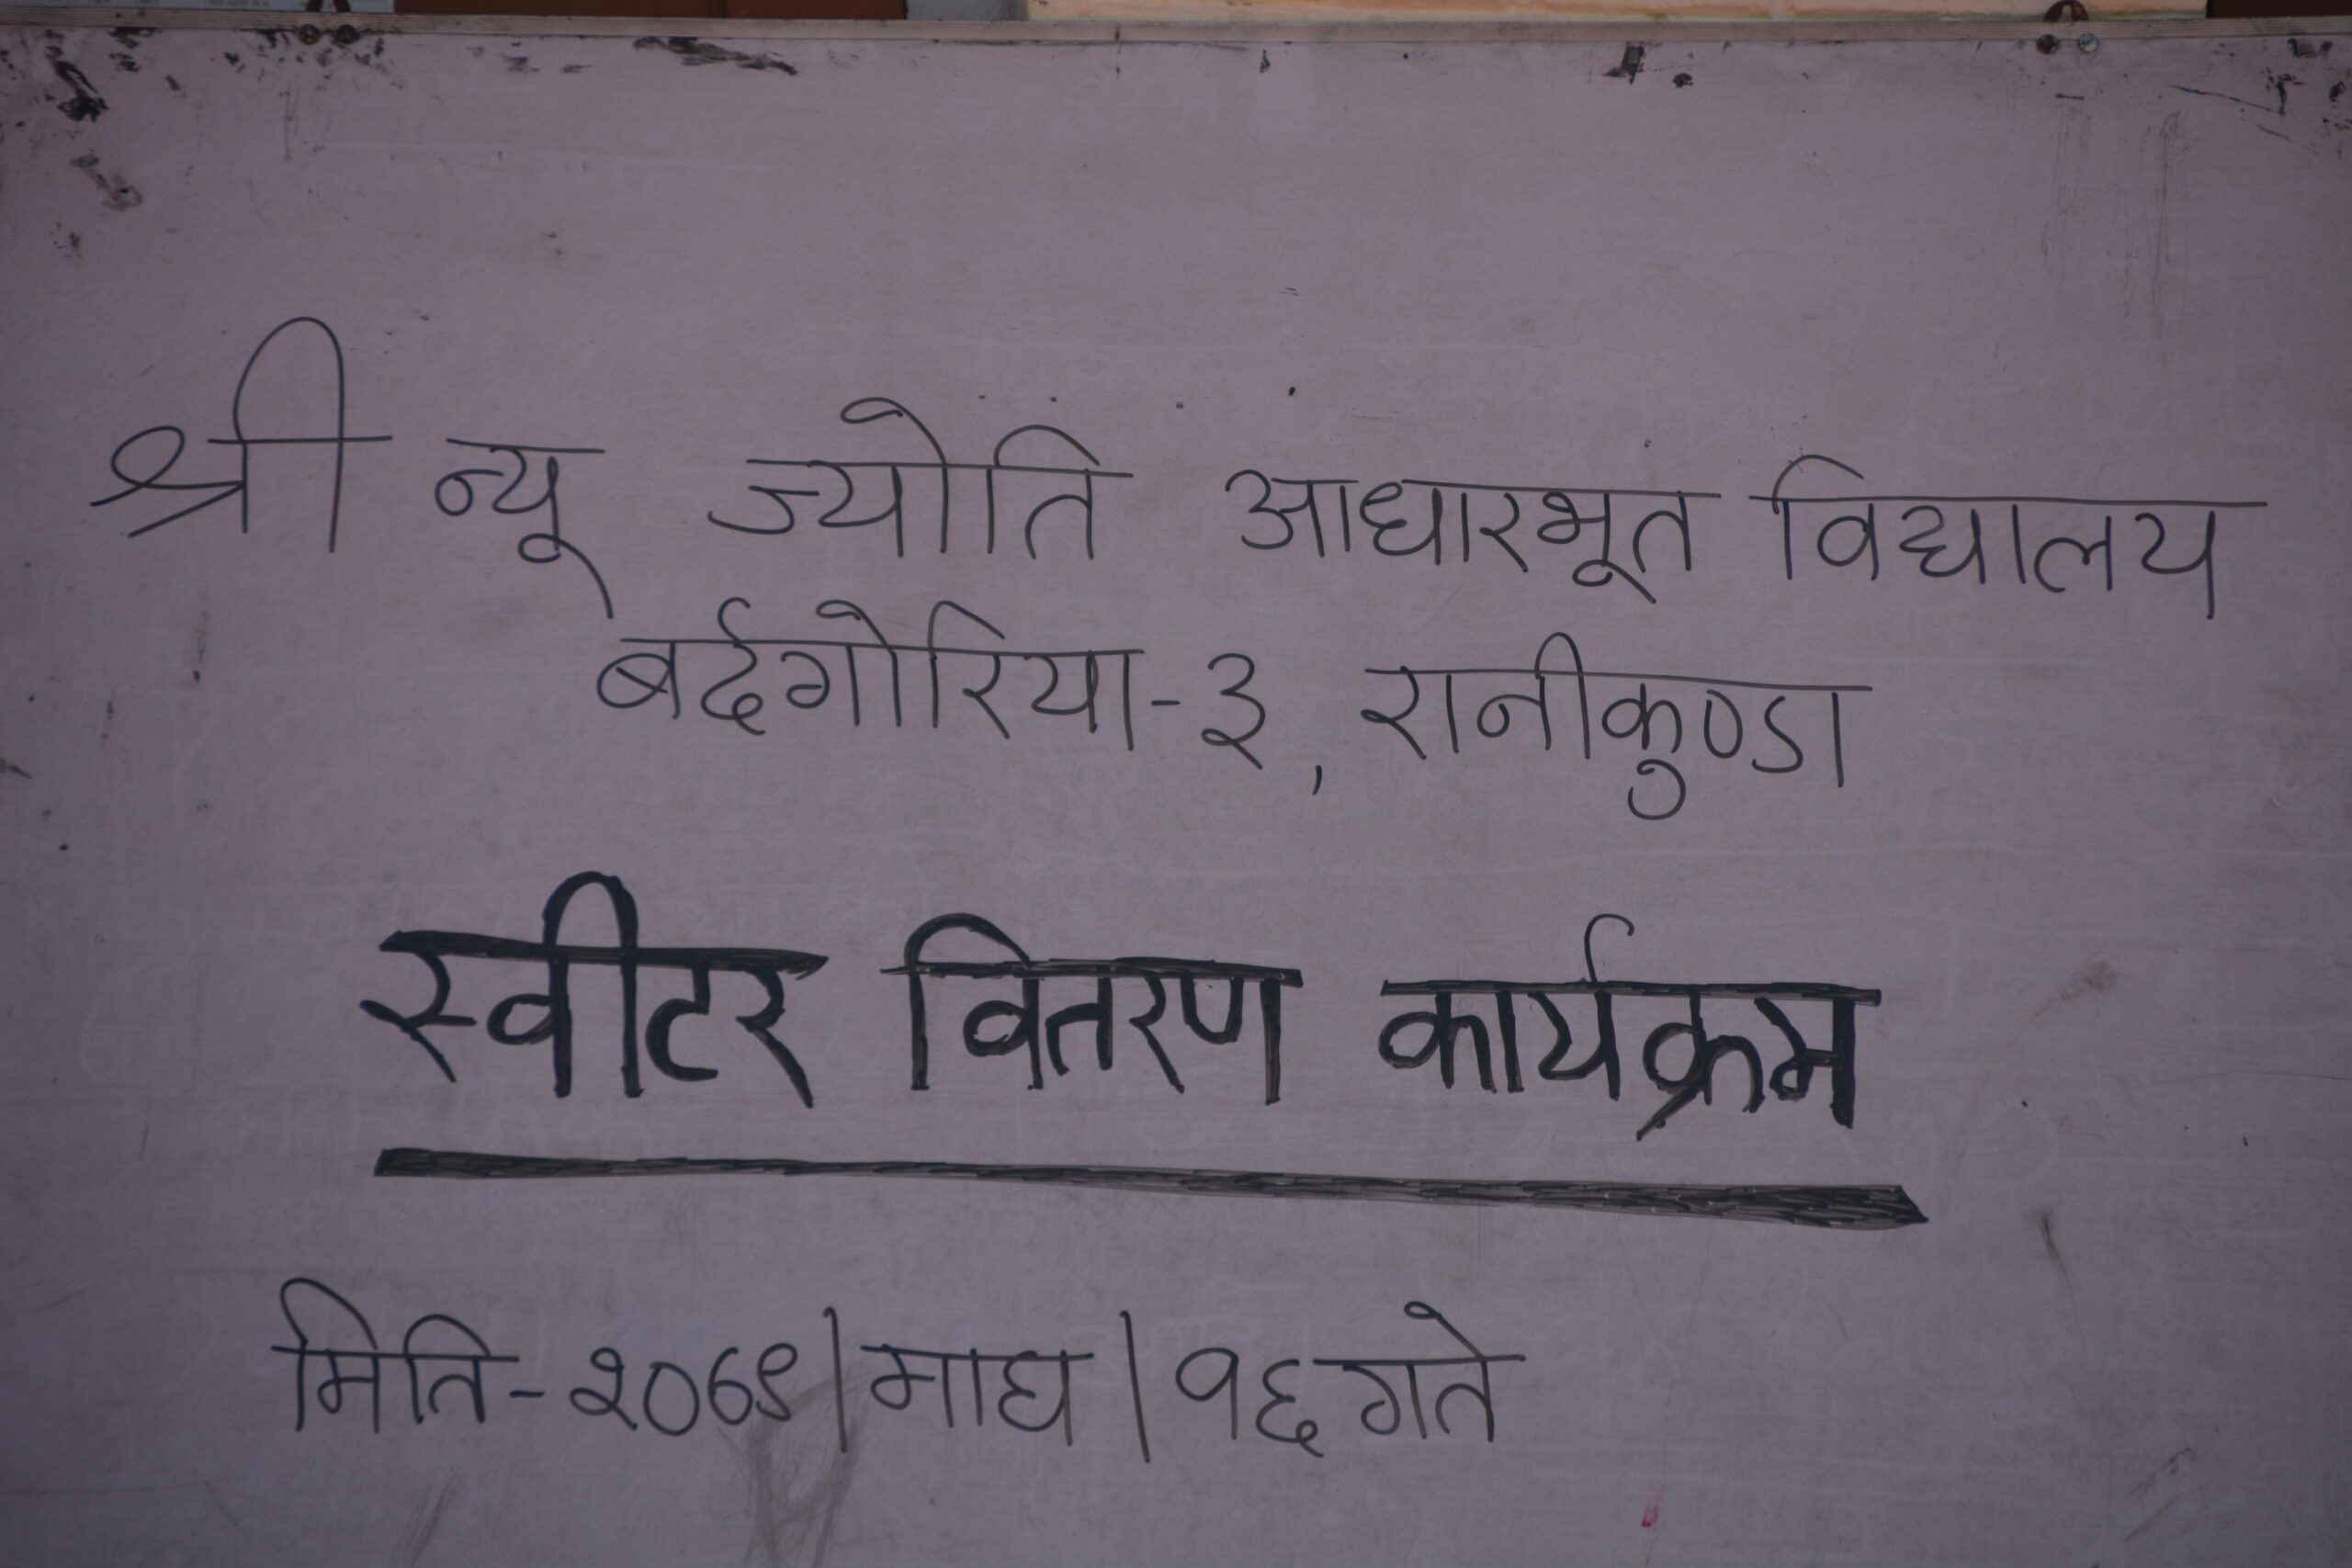 श्री न्यू ज्योति आधारभूत विद्यालय
बर्दगोरिया-३, रानीकुण्डा
स्वीटर वितरण कार्यक्रम
मिति-२०७९|माघ|१६ गते